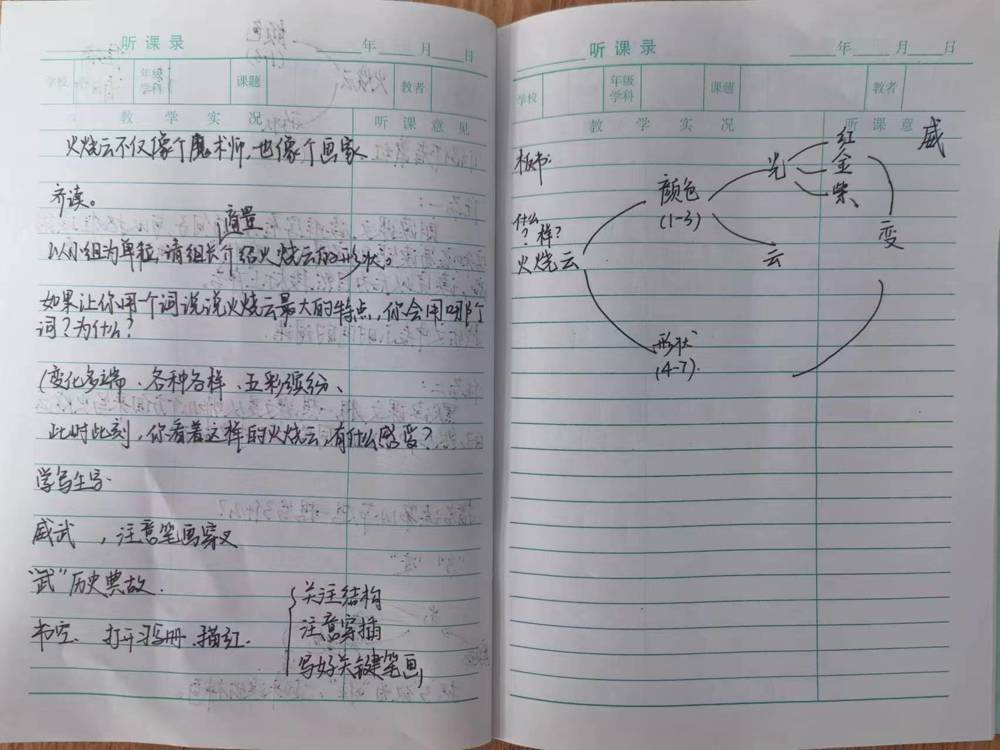 听课录
年 月 日
学校 年级学科 课题 教者
教学实况 听课意见
火烧云不仅像个魔术师,也像个画家
齐读。
商量
以小组为单位,请组长介绍火烧云的形状。
如果让你用一个词说说火烧云最大的特点,你会用哪个
词?为什么?
(变化多端、各种各样、五彩缤纷、
此时此刻,你看着这样的火烧云,有什么感受?
学写生字.
威武 ,注意笔画穿叉
“武”历史典故.
书空、打开习字册.描红.
关注结构
注意穿插
写好关键笔画
听课录
年 月 日
学校 年级学科 课题 教者
教学实况 听课意
板书:
威
红
金
紫、
光
颜色
(1-3)
什么
?样?
火烧云
云
变
形状
(4-7).